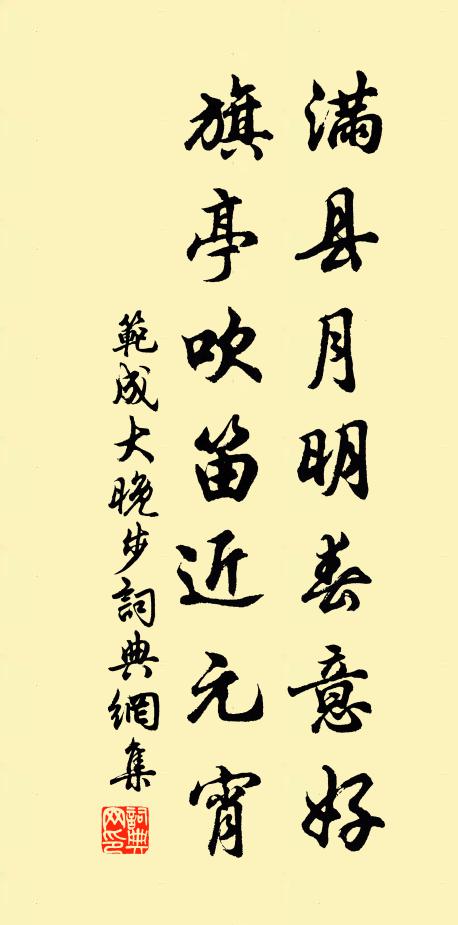 滿县月明春意好
旗亭吹笛近元宵
範成大晚步詞典網集
詞典
网印